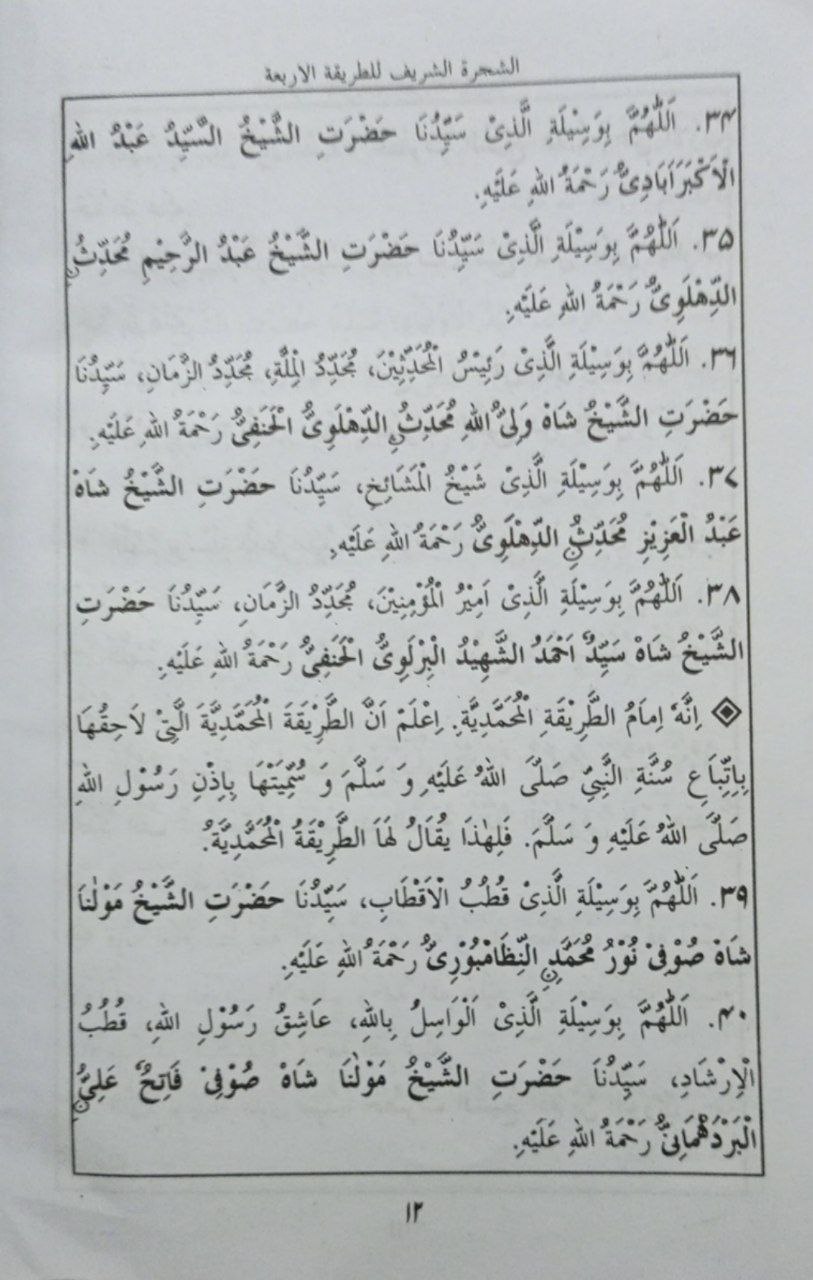 الشجرة الشريف للطريقة الاربعة
٣٤. اَللّٰهُمَّ بِوَسِيْلَةِ الَّذِىْ سَيِّدُنَا حَضْرَتِ الشَّيْخُ السَّيِّدُ عَبْدُ اللهِ
الْاَكْبَرَاَبَادِىُّ رَحْمَةُ اللهِ عَلَيْهِ.
٣٥. اَللّٰهُمَّ بِوَسِيْلَةِ الَّذِىْ سَيِّدُنَا حَضْرَتِ الشَّيْخُ عَبْدُ الرَّحِيْمِ مُحَدِّثُ نِ
الدِّهْلَوِىُّ رَحْمَةُ اللهِ عَلَيْهِ.
٣٦. اَللّٰهُمَّ بِوَسِيْلَةِ الَّذِىْ رَئِيْسُ الْمُحَدِّثِيْنَ، مُجَدِّدُ الْمِلَّةِ، مُجَدِّدُ الزَّمَانِ، سَيِّدُنَا
حَضْرَتِ الشَّيْخُ شَاهْ وَلِىُّ اللهِ مُحَدِّثُ نِ الدِّهْلَوِىُّ الْحَنَفِىُّ رَحْمَةُ اللهِ عَلَيْهِ.
٣٧. اَللّٰهُمَّ بِوَسِيْلَةِ الَّذِىْ شَيْخُ الْمَشَائِخِ، سَيِّدُنَا حَضْرَتِ الشَّيْخُ شَاهْ
عَبْدُ الْعَزِيْزِ مُحَدِّثُ نِ الدِّهْلَوِىُّ رَحْمَةُ اللهِ عَلَيْهِ.
٣٨. اَللّٰهُمَّ بِوَسِيْلَةِ الَّذِىْ اَمِيْرُ الْمُؤْمِنِيْنَ، مُجَدِّدُ الزَّمَانِ، سَيِّدُنَا حَضْرَتِ
الشَّيْخُ شَاهْ سَيِّدْ اَحْمَدُ الشَّهِيْدُ الْبِرْلَوِىُّ الْحَنَفِىُّ رَحْمَةُ اللهِ عَلَيْهِ.
◈ اِنَّهٗ اِمَامُ الطَّرِيْقَةِ الْمُحَمَّدِيَّةِ. اِعْلَمْ اَنَّ الطَّرِيْقَةَ الْمُحَمَّدِيَّةَ الَّتِىْ لَاحِقُهَا
بِاِتِّبَاعِ سُنَّةِ النَّبِيِّ صَلَّى اللهُ عَلَيْهِ وَ سَلَّمَ وَ سُمِّيَتْهَا بِاِذْنِ رَسُوْلِ اللهِ
صَلَّى اللهُ عَلَيْهِ وَ سَلَّمَ. فَلِهٰذَا يُقَالُ لَهَا الطَّرِيْقَةُ الْمُحَمَّدِيَّةُ.
٣٩. اَللّٰهُمَّ بِوَسِيْلَةِ الَّذِىْ قُطُبُ الْاَقْطَابِ، سَيِّدُنَا حَضْرَتِ الشَّيْخُ مَوْلٰنَا
شَاهْ صُوْفِىْ نُوْرُ مُحَمَّدِ نِ النِّظَامْبُوْرِىُّ رَحْمَةُ اللهِ عَلَيْهِ.
٤٠. اَللّٰهُمَّ بِوَسِيْلَةِ الَّذِىْ اَلْوَاسِلُ بِاللهِ، عَاشِقُ رَسُوْلِ اللهِ، قُطُبُ
الْاِرْشَادِ، سَيِّدُنَا حَضْرَتِ الشَّيْخُ مَوْلٰنَا شَاهْ صُوْفِىْ فَاتِحُ عَلِىُّ نِ
الْبَرْدَهْمَانِىُّ رَحْمَةُ اللهِ عَلَيْهِ.
١٢